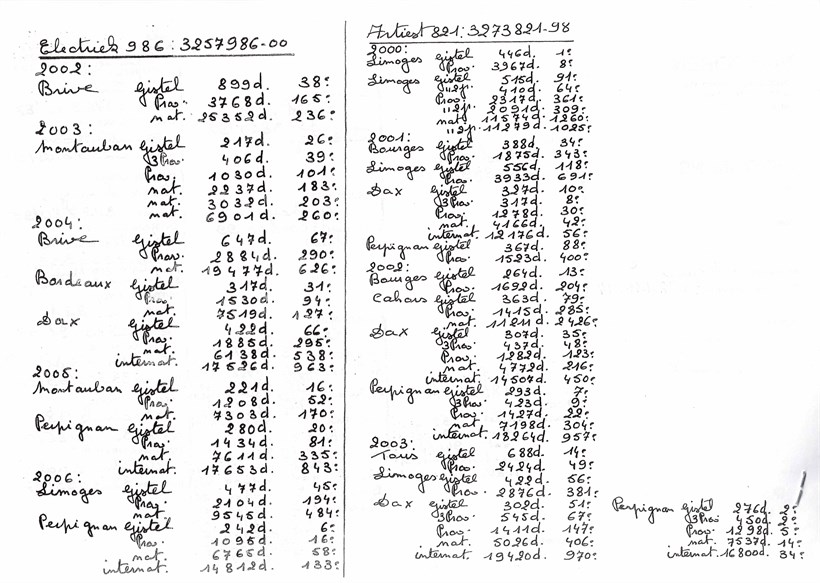 Electriek 986 : 3257986-00
2002:
Brive Gistel 899d. 38e
Prov. 3768d. 165e
nat. 25352d. 236e
2003:
Montauban Gistel 217d. 26e
3Prov. 406d. 39e
Prov. 1030d. 101e
nat. 2237d. 183e
nat. 3032d. 203e
nat. 6901d. 260e
2004:
Brive Gistel 647d. 67e
Prov. 2884d. 290e
nat. 19477d. 626e
Bordeaux Gistel 317d. 31e
Prov. 1530d. 94e
nat. 7519d. 127e
Dax Gistel 422d. 66e
Prov. 1885d. 295e
nat. 6138d. 538e
internat. 17526d. 963e
2005:
Montauban Gistel 221d. 16e
Prov. 1208d. 52e
nat. 7303d. 170e
Perpignan Gistel 280d. 20e
Prov. 1434d. 81e
nat. 7611d. 335e
internat. 17653d. 843e
2006:
Limoges Gistel 477d. 45e
Prov. 2104d. 194e
nat. 9545d. 484e
Perpignan Gistel 242d. 6e
Prov. 1095d. 16e
nat. 6765d. 58e
internat. 14812d. 133e
Artiest 821 : 3273821-98
2000:
Limoges Gistel 446d. 1e
Prov. 3967d. 8e
Limoges Gistel 515d. 91e
"2p. 410d. 64e
Prov. 2317d. 361e
"2p. 2091d. 309e
nat. 11574d. 1260e
"2p. 11279d. 1025e
2001:
Bourges Gistel 388d. 34e
Prov. 1875d. 343e
Limoges Gistel 556d. 118e
Prov. 3933d. 691e
Dax Gistel 327d. 10e
3Prov. 317d. 8e
Prov. 1278d. 30e
nat. 4166d. 42e
internat. 12176d. 56e
Perpignan Gistel 367d. 88e
Prov. 1523d. 400e
2002:
Bourges Gistel 264d. 13e
Prov. 1692d. 204e
Cahors Gistel 363d. 79e
Prov. 1415d. 285e
nat. 11211d. 2426e
Dax Gistel 307d. 35e
3Prov. 437d. 48e
Prov. 1282d. 123e
nat. 4772d. 216e
internat. 14507d. 450e
Perpignan Gistel 293d. 7e
3Prov. 423d. 9e
Prov. 1427d. 22e
nat. 7198d. 304e
internat. 18264d. 957e
2003:
Gistel 688d. 14e
Prov. 2424d. 49e
Limoges Gistel 422d. 56e
Prov. 2876d. 381e
Dax Gistel 302d. 51e
3Prov. 545d. 67e
Prov. 1411d. 147e
nat. 5026d. 406e
internat. 19420d. 970e
Perpignan Gistel 276d. 2e
3Prov. 450d. 2e
Prov. 1298d. 5e
nat. 7537d. 14e
internat. 16800d. 34e